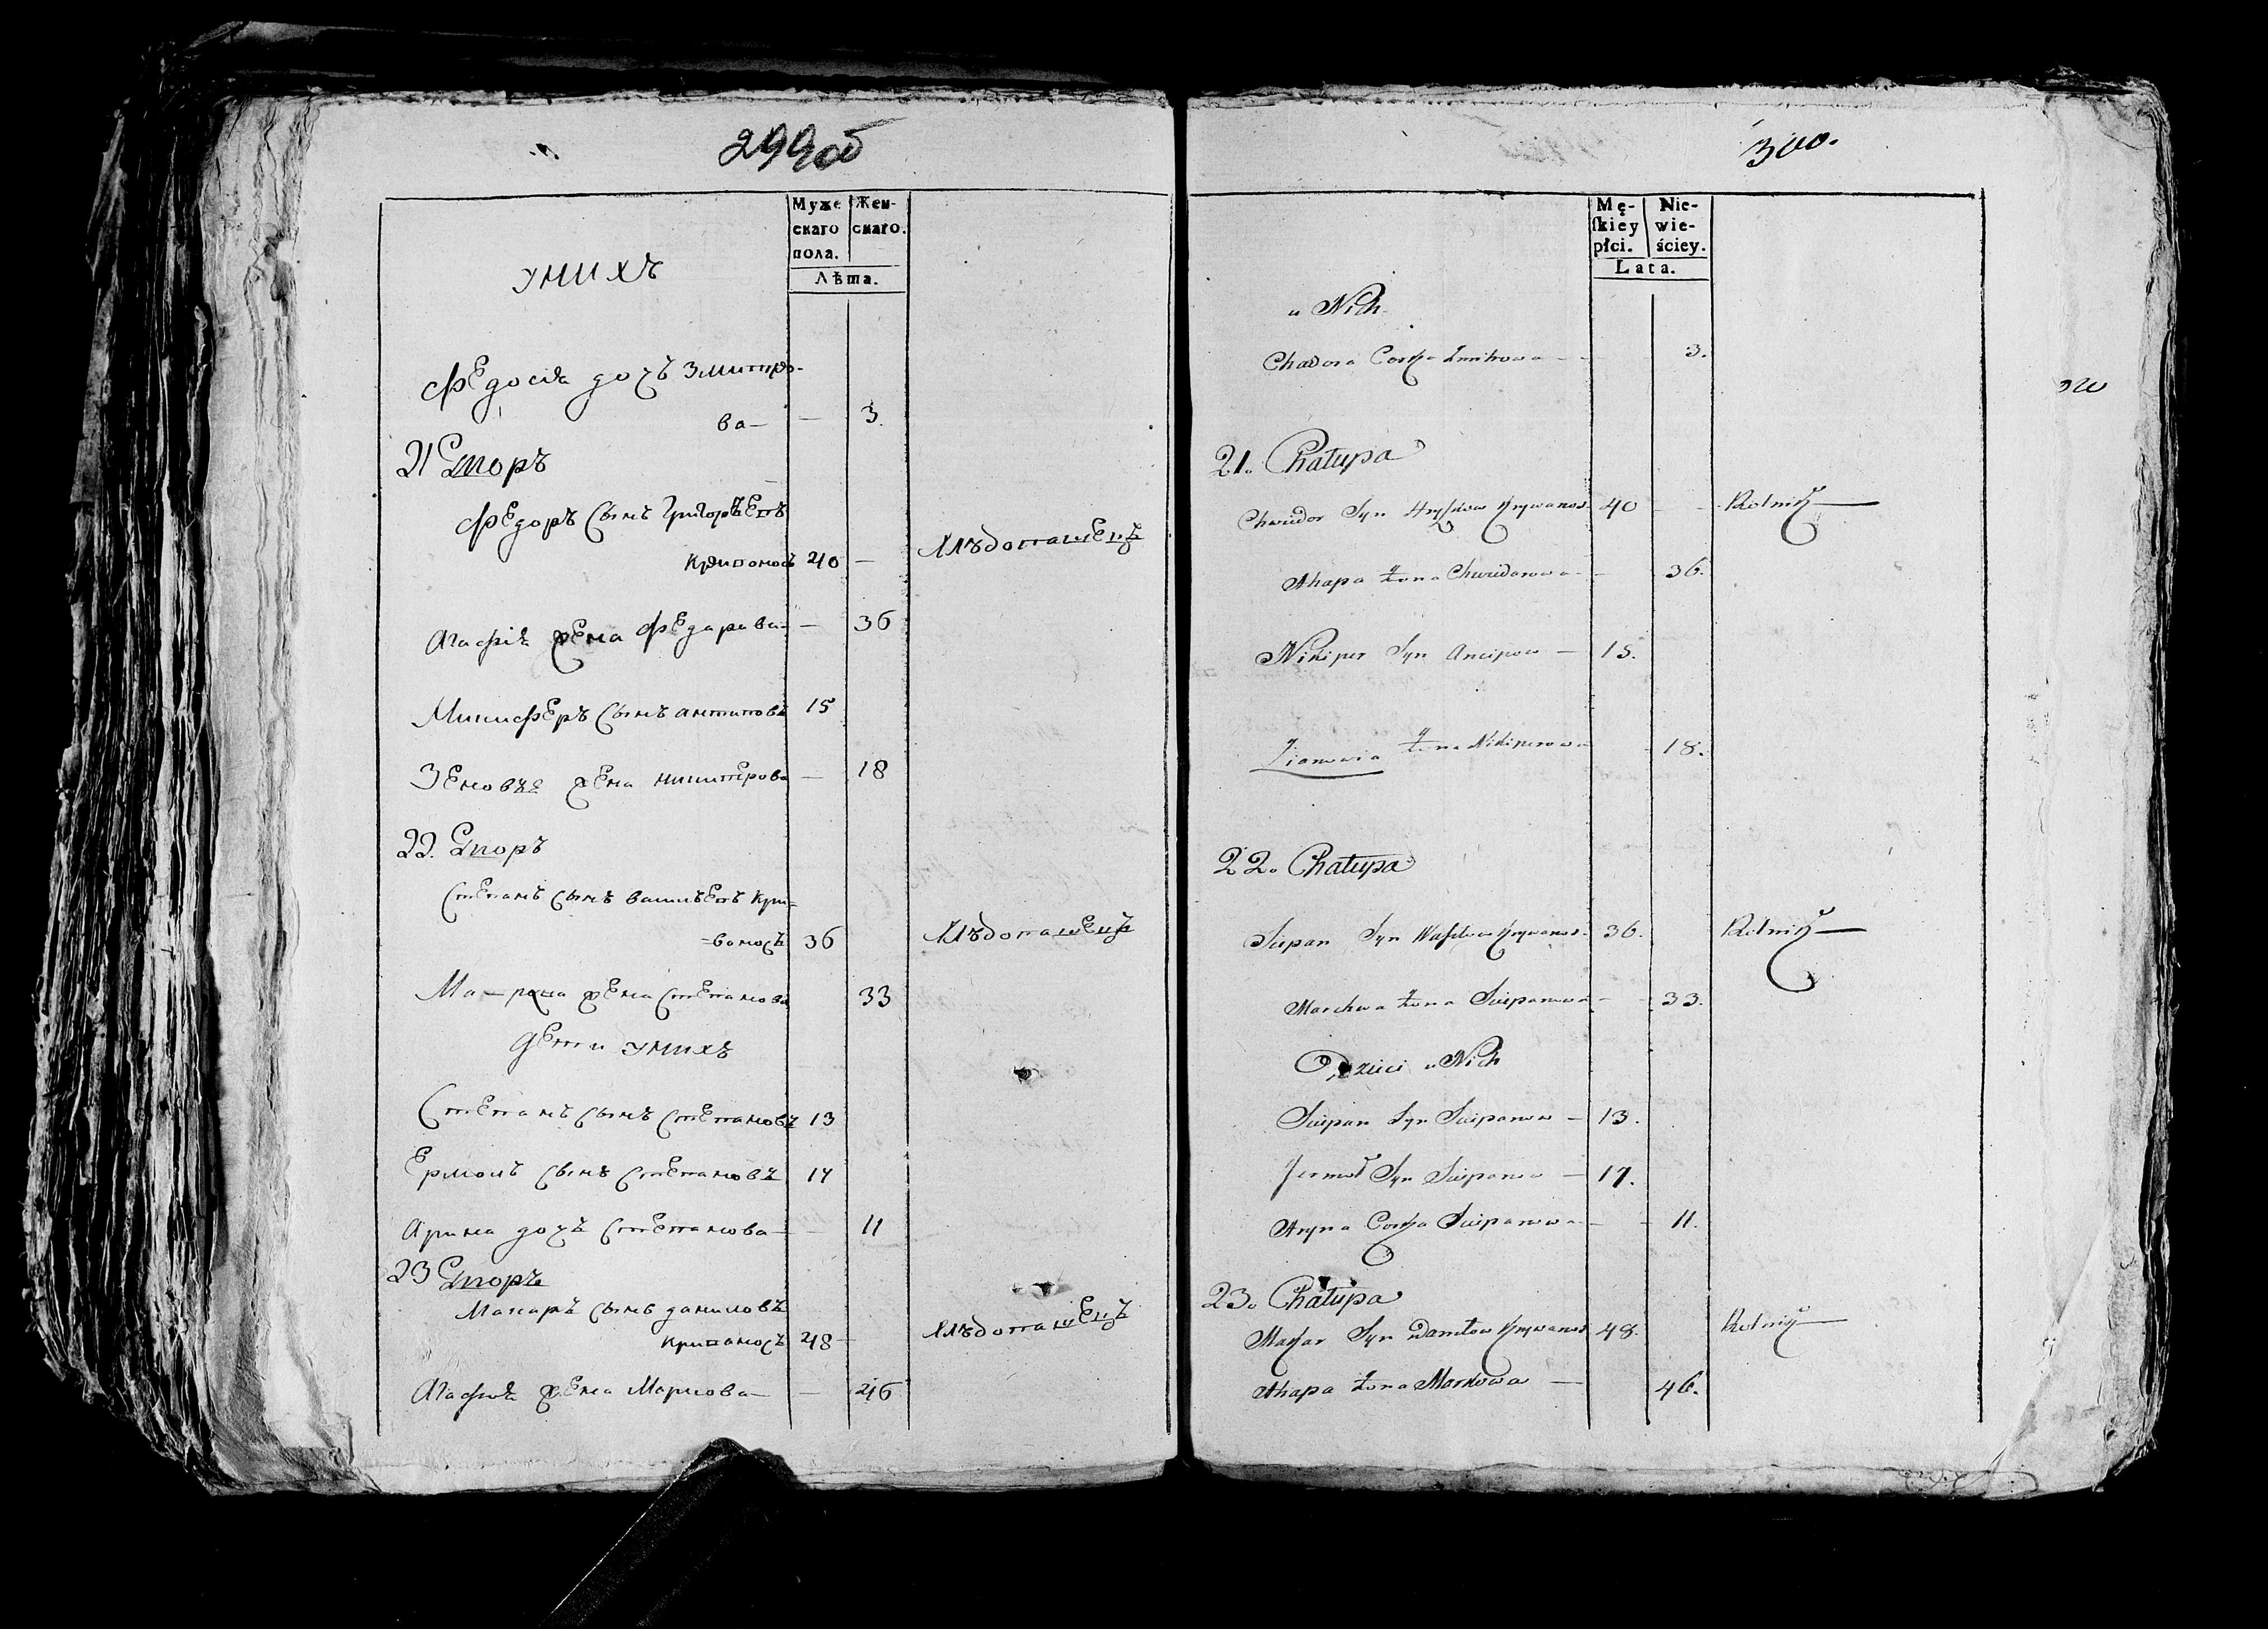 299об
Муже
скаго
пола.
Жен-
скаго.
Лѣта.
Унихъ
Федосiя дочъ Змитро-
ва — — 3.
21 Дворъ
Федоръ сынъ Григорьевъ
Кривоносъ 40 — Хлѣбопашецъ
Агафiя жена Федарава — — 36
Микиферъ сынъ антиповъ 15
Зеновъя жена никиперова — 18
22. Дворъ
Степанъ сынъ василъевъ Кри=
=воносъ 36 Хлѣбопашецъ
жена Степанова 33
дети унихъ
Степанъ сынъ Степановъ 13
Ермолъ сынъ Степановъ 17
Арина дочъ Степанова — — 11
23 Дворъ
Макаръ сынъ даниловъ
Кривоносъ 48 — Хлѣбопашецъ
Агафия жена Маркова — — 46
300.
Mę-
ſkiey
płci.
Nie-
wie-
ściey.
Lata.
u Nich
Chadora Corka Zmitrowa — — 3.
21. Chałupa
Chwidor Syn Hryſkow Krywanos 40 — — Rolnik —
Ahapa Żona Chwidorowa — — 36.
Nikiper Syn Ancipow — 15.
Zianowia Żona Nikiperowa 18.
22. Chałupa
Sciepan Syn Waſilow Krywanos 36. Rolnik —
Marchwa Żona Sciepanowa — — 33.
Dzieci u Nich
Sciepan Syn Sciepanow — 13.
Jermoł Syn Sciepanow — 17.
Aryna Corka Sciepanowa — — 11.
23. Chałupa
Makar Syn Daniłow Krywanos 48. Rolnik —
Ahapa Żona Markowa — 46.